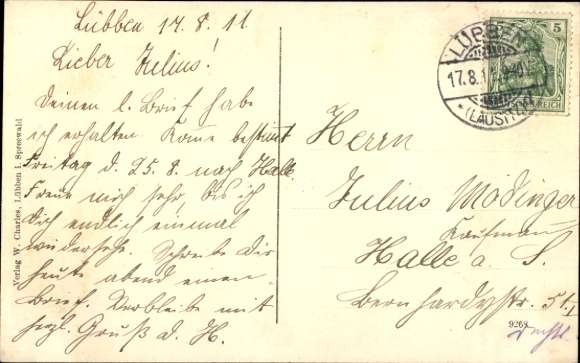 Lübben 17.8.11
Lieber Julius!
Deinen l. Brief habe
ich erhalten. Komme bestimmt
Freitag d. 25.8. nach Halle
Freue mich sehr, bis ich
Dich endlich einmal
wiedersehe. Schreibe Dir
heute abend einen
Brief. Verbleibe mit
herzl. Gruß d. H.
Herrn
Julius Mödinger
Kaufmann
Halle a. S.
Bernhardystr. 51 I
rechts.
9268
Verlag W. Charles, Lübben i. Spreewald
5
DEUTSCHES REICH
LÜBBEN
17.8.1
*(LAUSITZ)